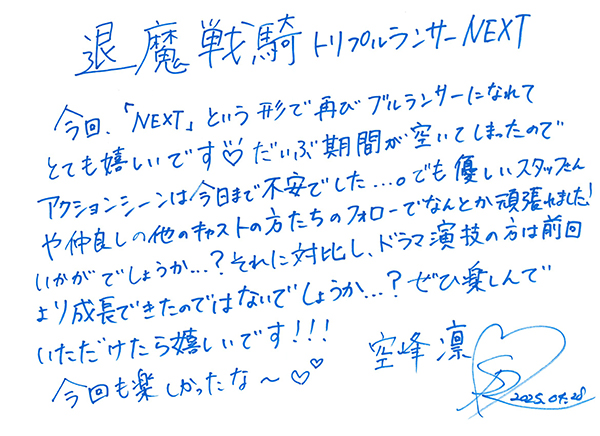 退魔戦騎トリプルランサーNEXT
今回、「NEXT」という形で再びブルランサーになれて
とても嬉しいです♡ だいぶ期間が空いてしまったので
アクションシーンは今日まで不安でした...。でも優しいスタッフさん
や仲良しの他のキャストの方たちのフォローでなんとか頑張れました!
いかがでしょうか...?それに対比し、ドラマ演技の方は前回
より成長できたのではないでしょうか...?ぜひ楽しんで
いただけたら嬉しいです!!!
今回も楽しかったな〜♡♡
空峰 凛
2025.04.28